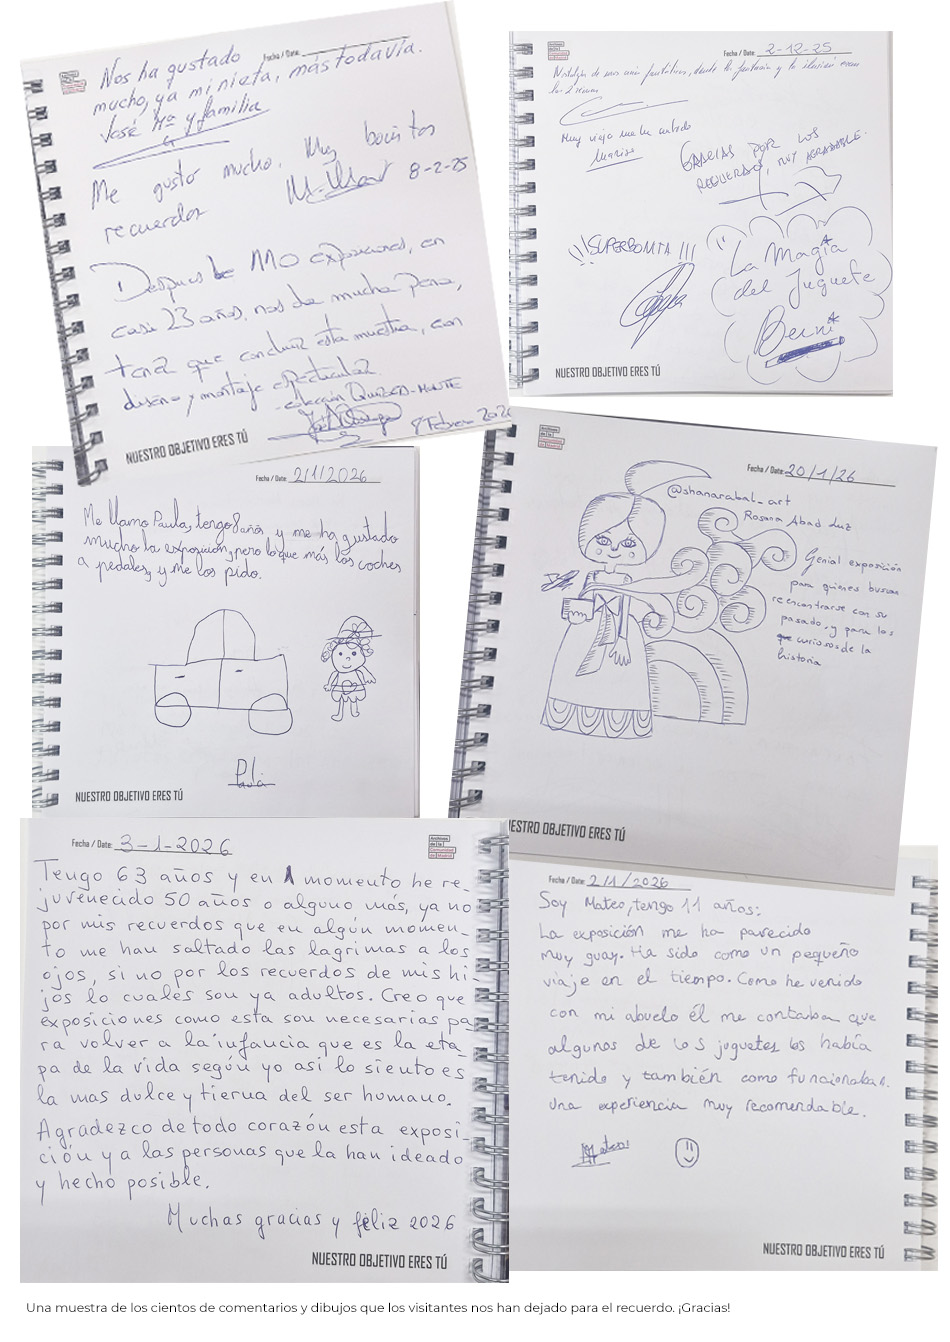 Fecha / Date:
Nos ha gustado
mucho, y a mi nieta, más todavía.
José Mª y familia
Me gustó mucho. Muy bonitos
recuerdos
8-2-25
Despues de 110 exposiciones, en
casi 23 años, nos da mucha pena,
tener que concluir esta muestra, con
diseño y montaje espectacular.
- colección Quiroga-Monte
8 Febrero 2026
NUESTRO OBJETIVO ERES TÚ
Fecha / Date: 2-12-25
Nostalgia de mis años
los Reyes
Muy viejo
GRACIAS POR LOS
RECUERDOS, MUY AGRADABLE.
¡¡¡SUPERBONITA!!!
"La Magia
del Juguete
Berni
NUESTRO OBJETIVO ERES TÚ
Fecha / Date: 2/1/2026
Me llamo Paula, tengo 8 años, y me ha gustado
mucho la exposición, pero lo que más los coches
a pedales, y me los pido.
Paula
NUESTRO OBJETIVO ERES TÚ
Archivos
de la
Comunidad
de Madrid
Fecha / Date: 20/1/26
@shanarabal_art
Rosana Abad Luz
Genial exposición
para quienes buscan
reencontrarse con su
pasado, y para los
que curiosos de la
historia
NUESTRO OBJETIVO ERES TÚ
Fecha / Date: 3-1-2026
Archivos
de la
Comunidad
de Madrid
Tengo 63 años y en 1 momento he re-
juvenecido 50 años o alguno más, ya no
por mis recuerdos que en algún momen-
to me han saltado las lagrimas a los
ojos, si no por los recuerdos de mis hi-
jos lo cuales son ya adultos. Creo que
exposiciones como esta son necesarias pa
ra volver a la infancia que es la eta-
pa de la vida según yo asi lo siento es
la mas dulce y tierna del ser humano.
Agradezco de todo corazón esta exposi-
ción y a las personas que la han ideado
y hecho posible.
Muchas gracias y féliz 2026
NUESTRO OBJETIVO ERES TÚ
Fecha / Date: 2/1/2026
Soy Mateo, tengo 11 años:
La exposición me ha parecido
muy guay. Ha sido como un pequeño
viaje en el tiempo. Como he venido
con mi abuelo él me contaba que
algunos de los juguetes los había
tenido y también como funcionaban.
Una experiencia muy recomendable.
Mateo
NUESTRO OBJETIVO ERES TÚ
Una muestra de los cientos de comentarios y dibujos que los visitantes nos han dejado para el recuerdo. ¡Gracias!